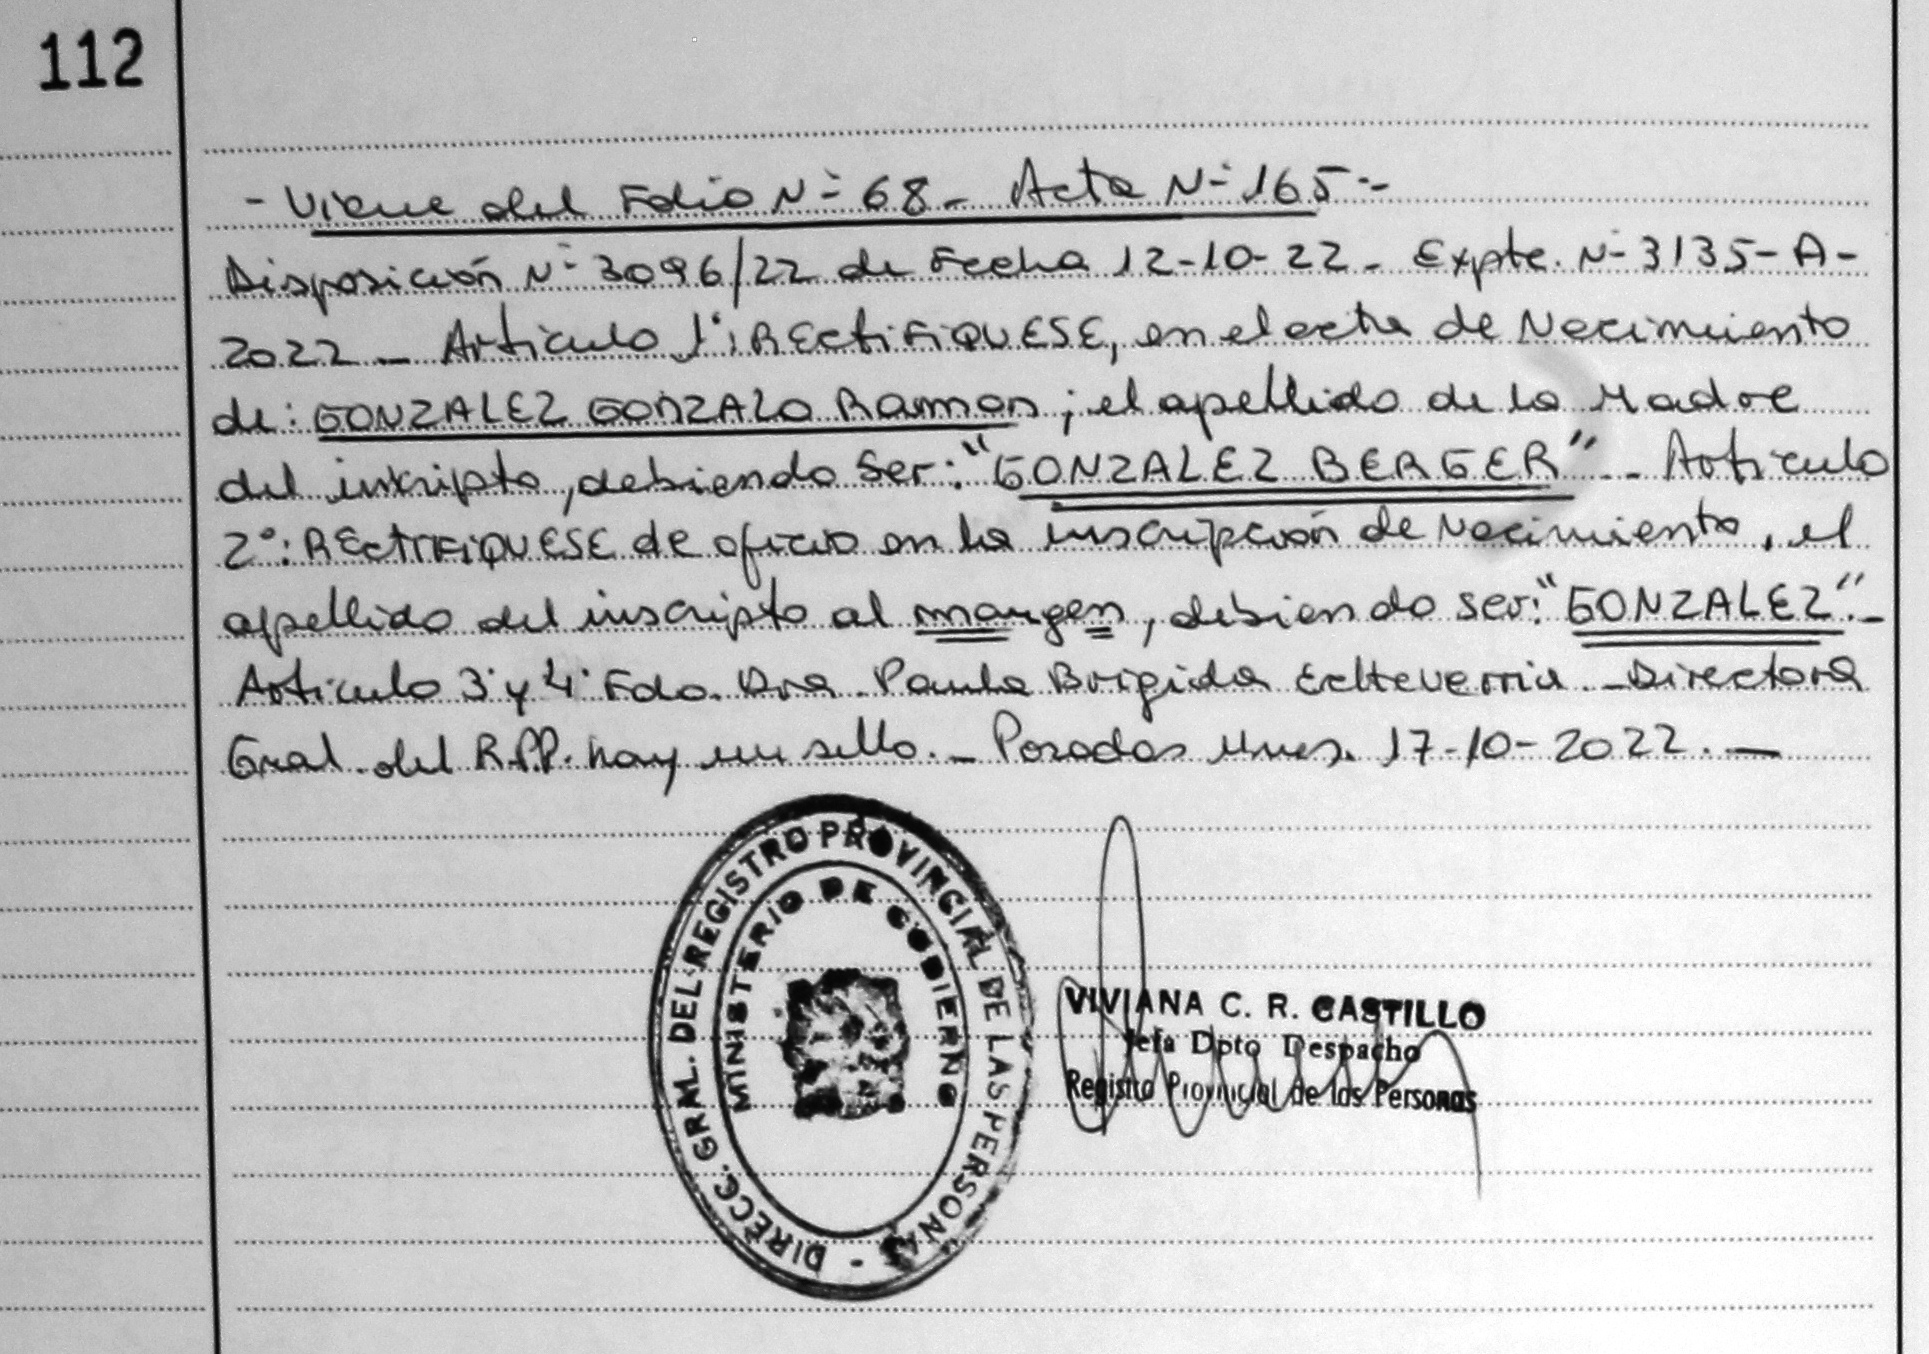 112
- Viene del Folio N° 68 - Acta N° 165 -
Disposición N° 3096/22 de Fecha 12-10-22 - Expte. N° 3135-A-
2022 - Articulo 1°: RECTIFIQUESE, en el acta de Nacimiento
de: GONZALEZ GONZALO Ramon; el apellido de la Madre
del inscripto, debiendo ser: "GONZALEZ BERGER" - Articulo
2°: RECTIFIQUESE de oficio en la inscripción de Nacimiento, el
apellido del inscripto al margen, debiendo ser: "GONZALEZ".-
Articulo 3° y 4° Fdo. Dra. Paula Brigida Echeverria - Directora
Gral. del R.P.P. hay un sello. - Posadas Mnes. 17-10-2022. -
DIRECC. GRAL. DEL REGISTRO PROVINCIAL DE LAS PERSONAS -
MINISTERIO DE GOBIERNO
VIVIANA C. R. CASTILLO
Jefa Dpto Despacho
Registro Provincial de las Personas